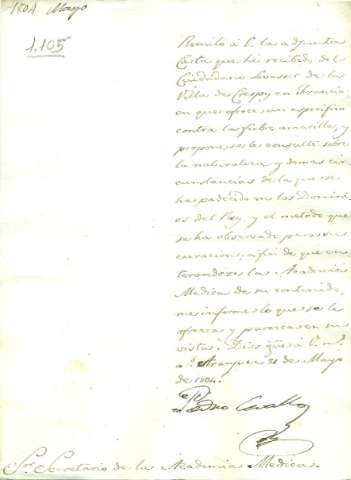 1804 Mayo
1.105
Remito á V. la adjunta
Carta que há recibido del
Ciudadano Levasset de la
Villa de Crespy en Francia,
en que ofrece un especifico
contra la fiebre amarilla, y
propone se le consulte sobre
la naturaleza y demas cir
cunstancias de la que se
ha padecido en los Domini
os del Rey, y el metodo que
se ha observado para su
curacion; a fin de que en
terandose la Academia
Medica de su contenido,
me informe lo que se la
ofrezca y parezca en su
vista. Dios gue á V. m.
a. Aranjuez 21 de Mayo
de 1804.
Pedro Cevallos
Sor. Secretario de la Academia Medica.